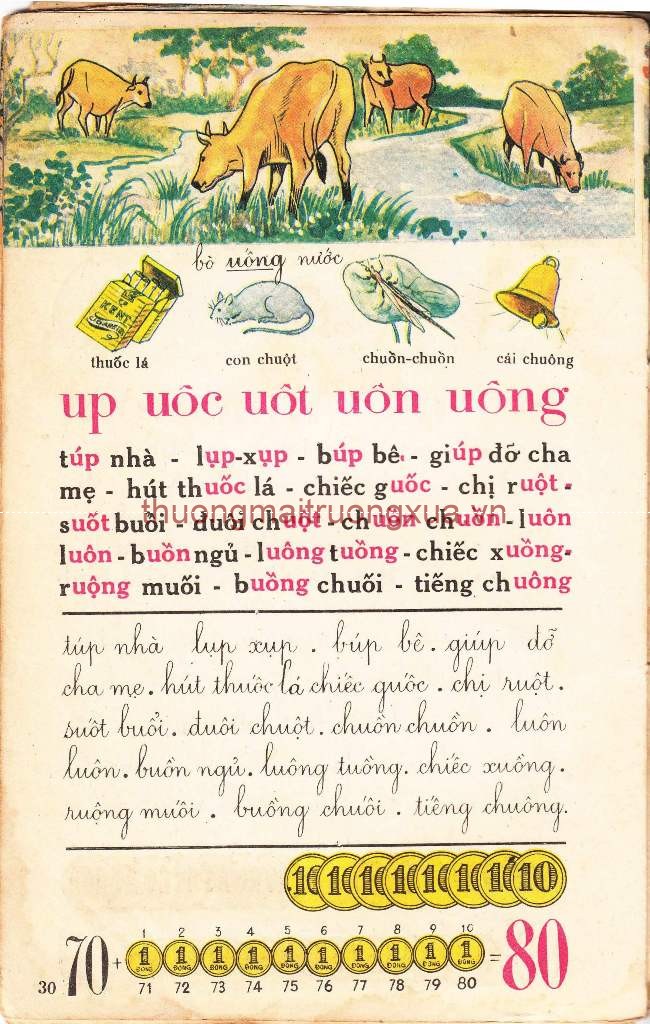 bò uống nước
KENT
thuốc lá
con chuột
chuồn-chuồn
cái chuông
up uôc uôt uôn uông
túp nhà - lụp-xụp - búp bê - giúp đỡ cha
mẹ - hút thuốc lá - chiếc guốc - chị ruột -
thuongmaitruongxua.vn
suốt buổi - đuôi chuột - chuồn chuồn - luôn
luôn - buồn ngủ - luông tuồng - chiếc xuồng-
ruộng muối - buồng chuối - tiếng chuông
túp nhà lụp xụp . búp bê . giúp đỡ
cha mẹ . hút thuốc lá chiếc guốc . chị ruột .
suốt buổi . đuôi chuột . chuồn chuồn . luôn
luôn . buồn ngủ . luông tuồng . chiếc xuồng .
ruộng muối . buồng chuối . tiếng chuông.
10 10 10 10 10 10 10 10
1 2 3 4 5 6 7 8 9 10
70 + 1 ĐỒNG 1 ĐỒNG 1 ĐỒNG 1 ĐỒNG 1 ĐỒNG 1 ĐỒNG 1 ĐỒNG 1 ĐỒNG 1 ĐỒNG 1 ĐỒNG = 80
71 72 73 74 75 76 77 78 79 80
30